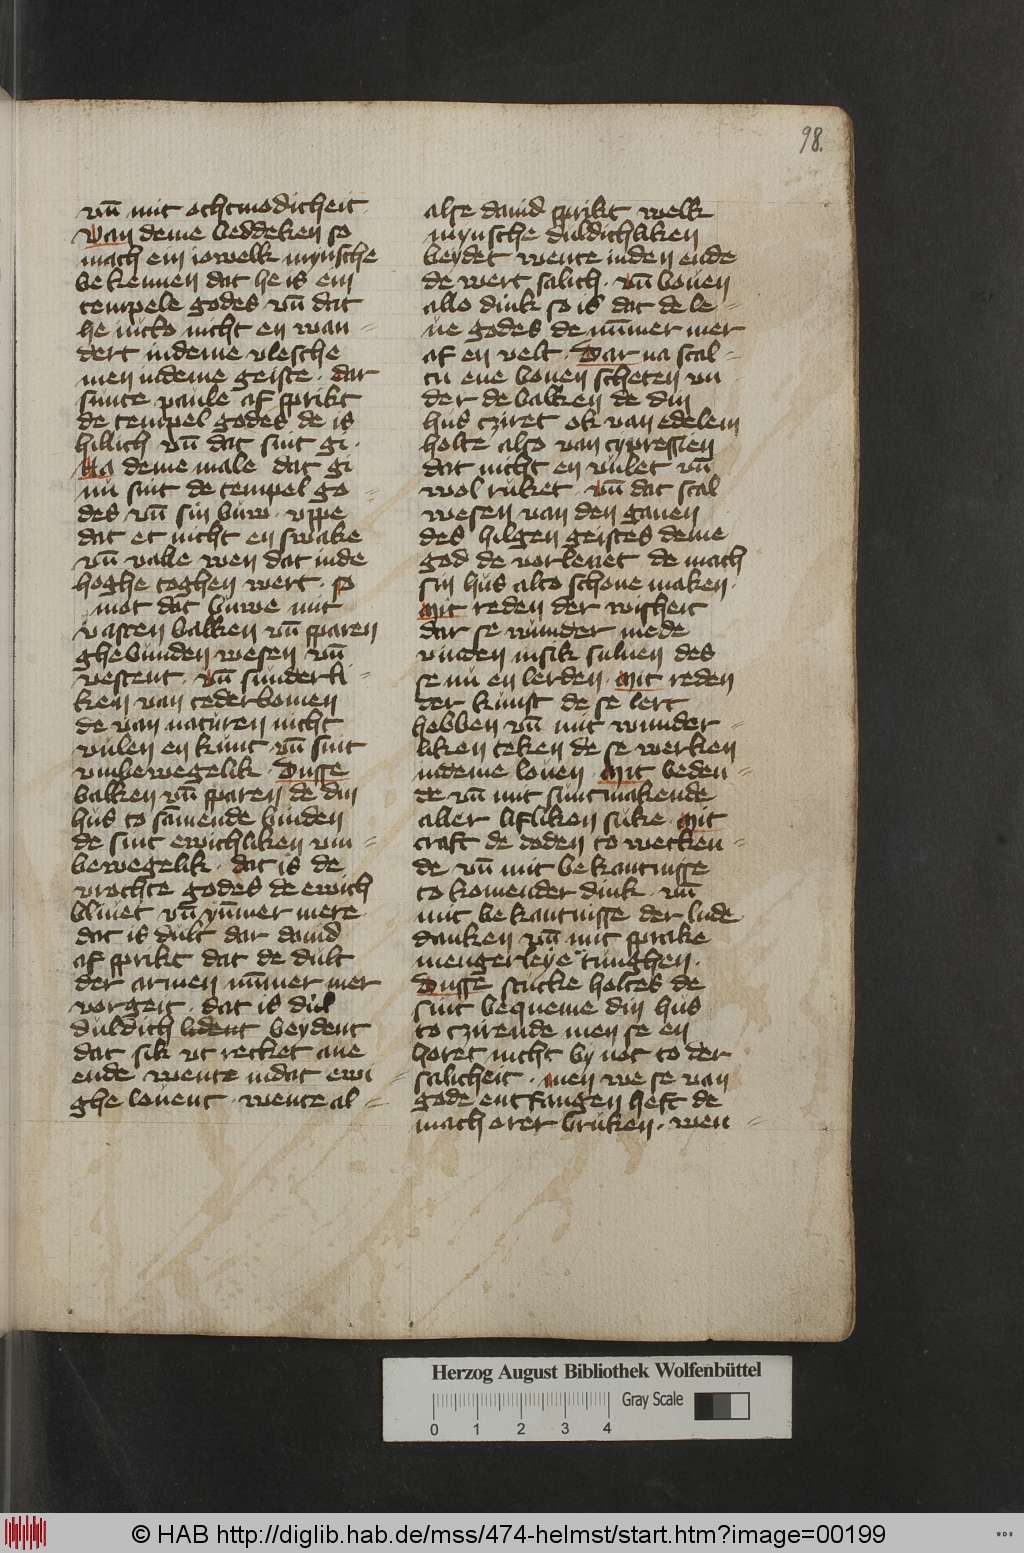 98.
vn̄ mit othmodicheit
Van deme beddeken so
mach ein iowelk mynsche
bekennen dat he is ein
tempele godes vn̄ dat
he nicto nicht en wan=
dert indeme vlesche
men indeme geiste · dar
sunte paule af sprikt
de tempel godes de is
hillich vn̄ dat sint gi ·
Na deme male dat gi
nu sint de tempel go=
des vn̄ sin buw · uppe
dat et nicht en swake
vn̄ valle wen dat inde
hoghe toghen wert · so
mot dat buwe mit
vasten balken vn̄ sparen
ghebunden wesen vn̄
vestent · vn̄ sunderli=
ken van cederbomen
de van naturen nicht
vulen en kunt vn̄ sint
vnbewegelik · Dusse
balken vn̄ sparen de din
hus to samende binden
de sint ewichliken vm
bewegelik · dat is de
vrochte godes de ewich
bliuet vn̄ ȳmmer mere
dat is dult dar dauid
af sprikt dat de dult
der armen nūmmer mer
vorgeit · dat is dul
duldich lident beydent
dat sik ut recket ane
ende wente indat ewi=
ghe louent · wente al=
alse dauid sprikt welk
mynsche duldichliken
beydet wente inden ende
de wert salich · vn̄ bouen
allo dink so is dat de le=
ue godes de nūmmer mer
af en velt · Dar na scal=
tu ene bouen scheten vn
der de balken de din
hus cziret ok van edelem
holte also van cypressien
dat nicht en vulet vn̄
wol ruket · vn̄ dat scal
wesen van den gauen
des hilgen geistes deme
god de vorlenet de mach
sin hus alto schone maken ·
Mit reden der wisheit
dar se wunder mede
vinden insik suluen des
se nu en lerden · Mit reden
der kunst de se lert
hebben vn̄ mit wunder=
liken teken de se werken
indeme louen · Mit beden=
de vn̄ mit suntmakende
aller lifliken suke · Mit
craft de doden to wecken=
de vn̄ mit bekantnisse
to komender dink · vn̄
mit bekantnisse der lude
danken vn̄ mit sprake
mengerleye tunghen ·
Dusse stucke holtes de
sint bequeme din hus
to czirende men se en
horet nicht by not to der
salicheit · men we se van
gode entfangen heft de
mach orer bruken · wen=
Herzog August Bibliothek Wolfenbüttel
Gray Scale
0 1 2 3 4
© HAB http://diglib.hab.de/mss/474-helmst/start.htm?image=00199